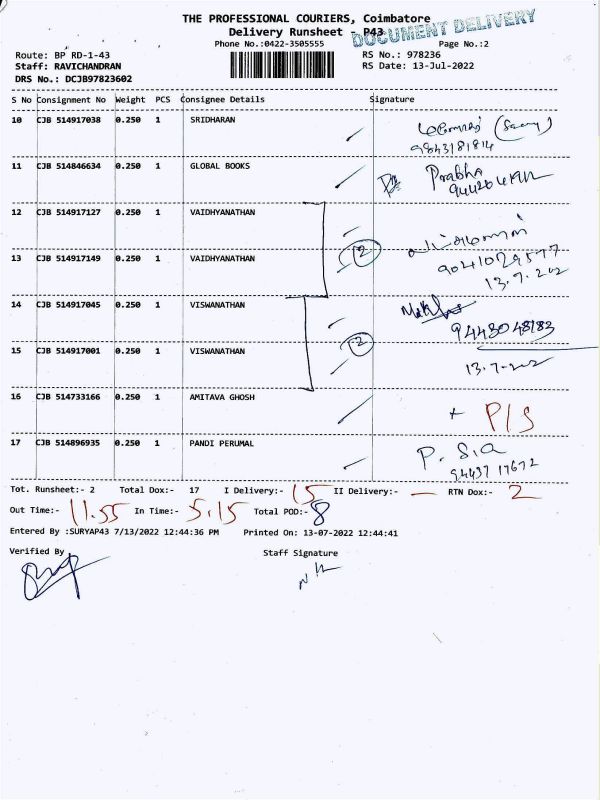 THE PROFESSIONAL COURIERS, Coimbatore
Delivery Runsheet - P43
DOCUMENT DELIVERY
Phone No.:0422-3505555 Page No.:2
Route: BP RD-1-43 RS No.: 978236
Staff: RAVICHANDRAN RS Date: 13-Jul-2022
DRS No.: DCJB97823602
S No Consignment No Weight PCS Consignee Details Signature
10 CJB 514917038 0.250 1 SRIDHARAN
9843181814
11 CJB 514846634 0.250 1 GLOBAL BOOKS Prabha
12 CJB 514917127 0.250 1 VAIDHYANATHAN
2
13 CJB 514917149 0.250 1 VAIDHYANATHAN 9041029577
13.7.202
14 CJB 514917045 0.250 1 VISWANATHAN
9443048183
2
15 CJB 514917001 0.250 1 VISWANATHAN
13.7.202
16 CJB 514733166 0.250 1 AMITAVA GHOSH P/S
17 CJB 514896935 0.250 1 PANDI PERUMAL P. Siva
94437 17672
Tot. Runsheet:- 2 Total Dox:- 17 I Delivery:- 15 II Delivery:- — RTN Dox:- 2
Out Time:- 11.55 In Time:- 5.15 Total POD:- 8
Entered By :SURYAP43 7/13/2022 12:44:36 PM Printed On: 13-07-2022 12:44:41
Verified By Staff Signature